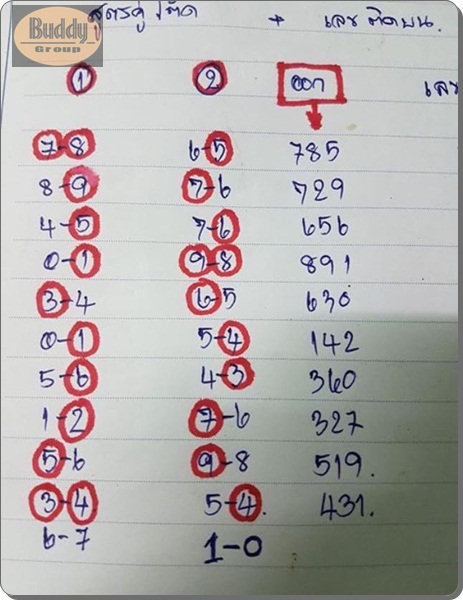 Buddy
Group
สูตรคู่เด็ด + เลขติดบน.
1 2 ออก เลข
7-8 6-5 785
8-9 7-6 729
4-5 7-6 656
0-1 9-8 891
3-4 6-5 630
0-1 5-4 142
5-6 4-3 360
1-2 7-6 327
5-6 9-8 519.
3-4 5-4. 431.
6-7 1-0